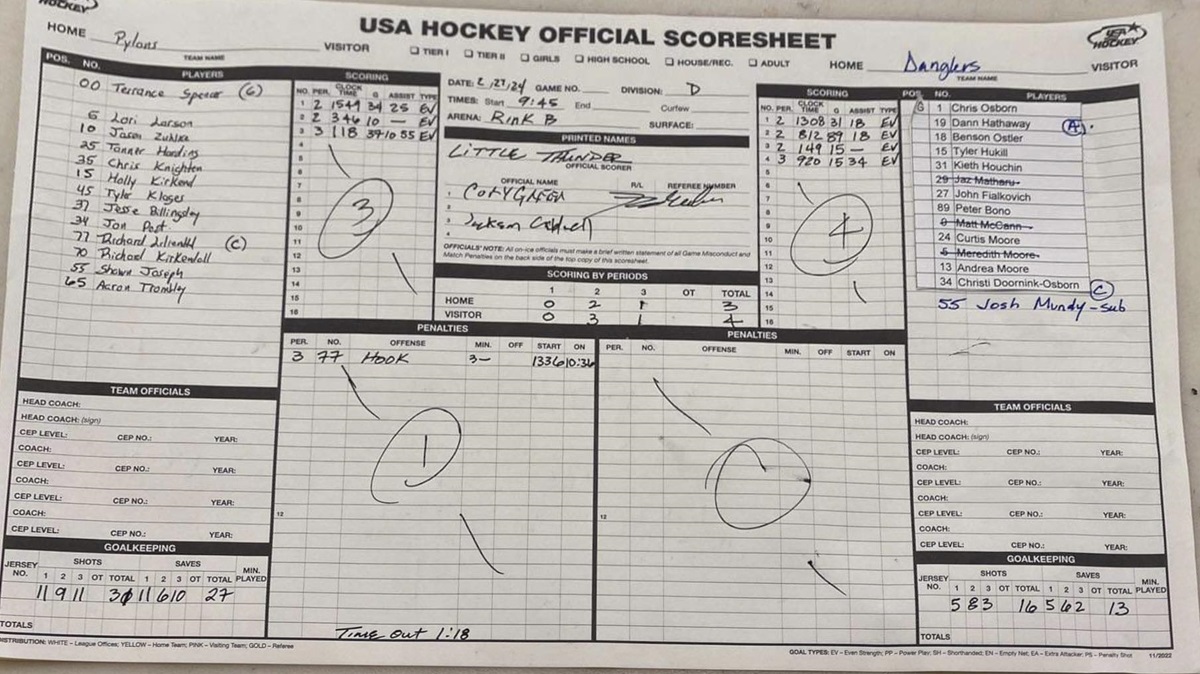 HOCKEY
USA HOCKEY OFFICIAL SCORESHEET
USA HOCKEY
HOME Pylons VISITOR
TEAM NAME
☐ TIER I ☐ TIER II ☐ GIRLS ☐ HIGH SCHOOL ☐ HOUSE/REC. ☐ ADULT
HOME Danglers VISITOR
TEAM NAME
POS. NO. PLAYERS
00 Terrance Spencer (G)
6 Lori Larson
10 Jason Zuhlke
25 Tanner Harding
35 Chris Knighten
15 Holly Kirkend
45 Tyler Kloges
37 Jesse Billingsley
34 Jon Post
77 Richard (C)
70 Richard Kirkendall
55 Shawn Joseph
65 Aaron Trombley
SCORING
NO. PER. CLOCK TIME G ASSIST TYPE
1 2 1544 34 25 EV
2 2 346 10 — EV
3 3 118 37 10 55 EV
4
5
6
7
8
9
10
11
12
13
14
15
16
3
DATE: 2/27/24 GAME NO. DIVISION: D
TIMES: Start 9:45 End Curfew
ARENA: Rink B SURFACE:
PRINTED NAMES
LITTLE THUNDER
OFFICIAL SCORER
OFFICIAL NAME R/L REFEREE NUMBER
1. Cory Green
2.
3. Jackson Caldwell
4.
OFFICIALS' NOTE: All on-ice officials must make a brief written statement of all Game Misconduct and
Match Penalties on the back side of the top copy of this scoresheet.
SCORING BY PERIODS
1 2 3 OT TOTAL
HOME 0 2 1 3
VISITOR 0 3 1 4
SCORING
NO. PER. CLOCK TIME G ASSIST TYPE
1 2 1308 31 18 EV
2 2 812 89 18 EV
3 2 149 15 — EV
4 3 920 15 34 EV
5
6
7
8
9
10
11
12
13
14
15
16
4
POS. NO. PLAYERS
G 1 Chris Osborn
19 Dann Hathaway (A)
18 Benson Ostler
15 Tyler Hukill
31 Kieth Houchin
29 Jaz Matharu
27 John Fialkovich
89 Peter Bono
9 Matt McCann
24 Curtis Moore
5 Meredith Moore
13 Andrea Moore
34 Christi Doornink-Osborn (C)
55 Josh Mundy-sub
PENALTIES
PER. NO. OFFENSE MIN. OFF START ON
3 77 HOOK 3— 1336 10:36
1
12
Time out 1:18
PENALTIES
PER. NO. OFFENSE MIN. OFF START ON
12
TEAM OFFICIALS
HEAD COACH:
HEAD COACH: (sign)
CEP LEVEL: CEP NO.: YEAR:
COACH:
CEP LEVEL: CEP NO.: YEAR:
COACH:
CEP LEVEL: CEP NO.: YEAR:
COACH:
CEP LEVEL: CEP NO.: YEAR:
GOALKEEPING
JERSEY NO. SHOTS SAVES MIN. PLAYED
1 2 3 OT TOTAL 1 2 3 OT TOTAL
11 9 11 11 6 10 27
TOTALS
TEAM OFFICIALS
HEAD COACH:
HEAD COACH: (sign)
CEP LEVEL: CEP NO.: YEAR:
COACH:
CEP LEVEL: CEP NO.: YEAR:
COACH:
CEP LEVEL: CEP NO.: YEAR:
COACH:
CEP LEVEL: CEP NO.: YEAR:
GOALKEEPING
JERSEY NO. SHOTS SAVES MIN. PLAYED
1 2 3 OT TOTAL 1 2 3 OT TOTAL
5 8 3 16 5 6 2 13
TOTALS
DISTRIBUTION: WHITE – League Offices; YELLOW – Home Team; PINK – Visiting Team; GOLD – Referee
GOAL TYPES: EV – Even Strength; PP – Power Play; SH – Shorthanded; EN – Empty Net; EA – Extra Attacker; PS – Penalty Shot
11/2022